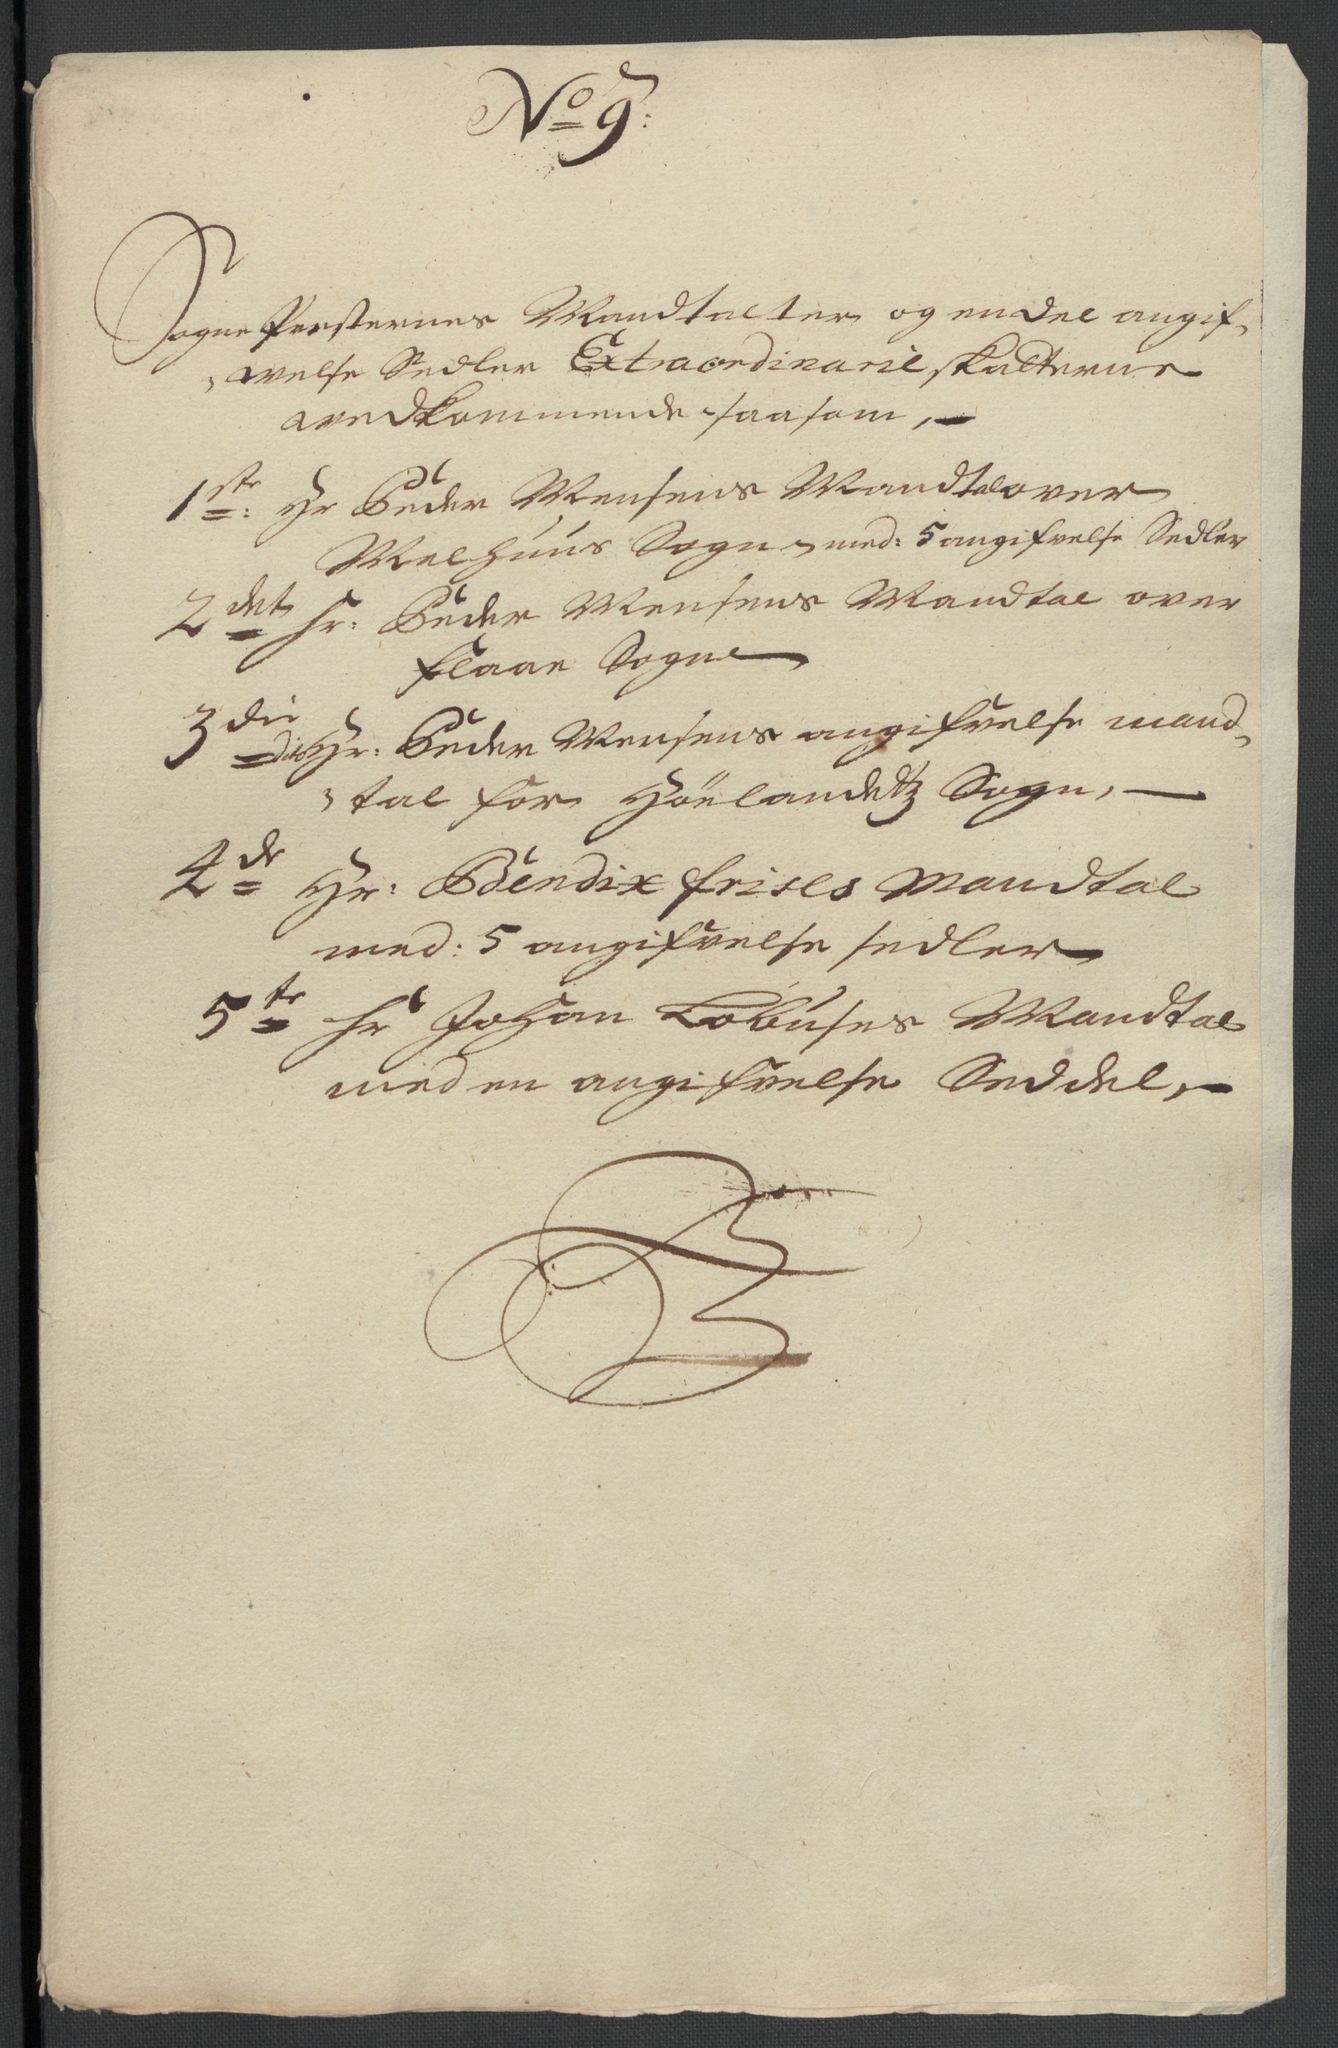 No 9:
Sogne Presternes Mandtalter og en deel angif-
velse Sedler Extraordinarie skatterne
vedkommende saasom,
1ste: Hr Peder Mensens Mandtal over
Melhuus Sogn med: 5 angifvelse Sedler
2det Hr: Peder Mensens Mandtal over
Flaae Sogne
3die Hr: Peder Mensens angifvelse mand-
tal for Höelandetz Sogn,
4de Hr: Bendix Frises Mandtal
med: 5 angifvelse sedler
5te Hr Johan Lobuses Mandtal
med en angifvelse Seddel,